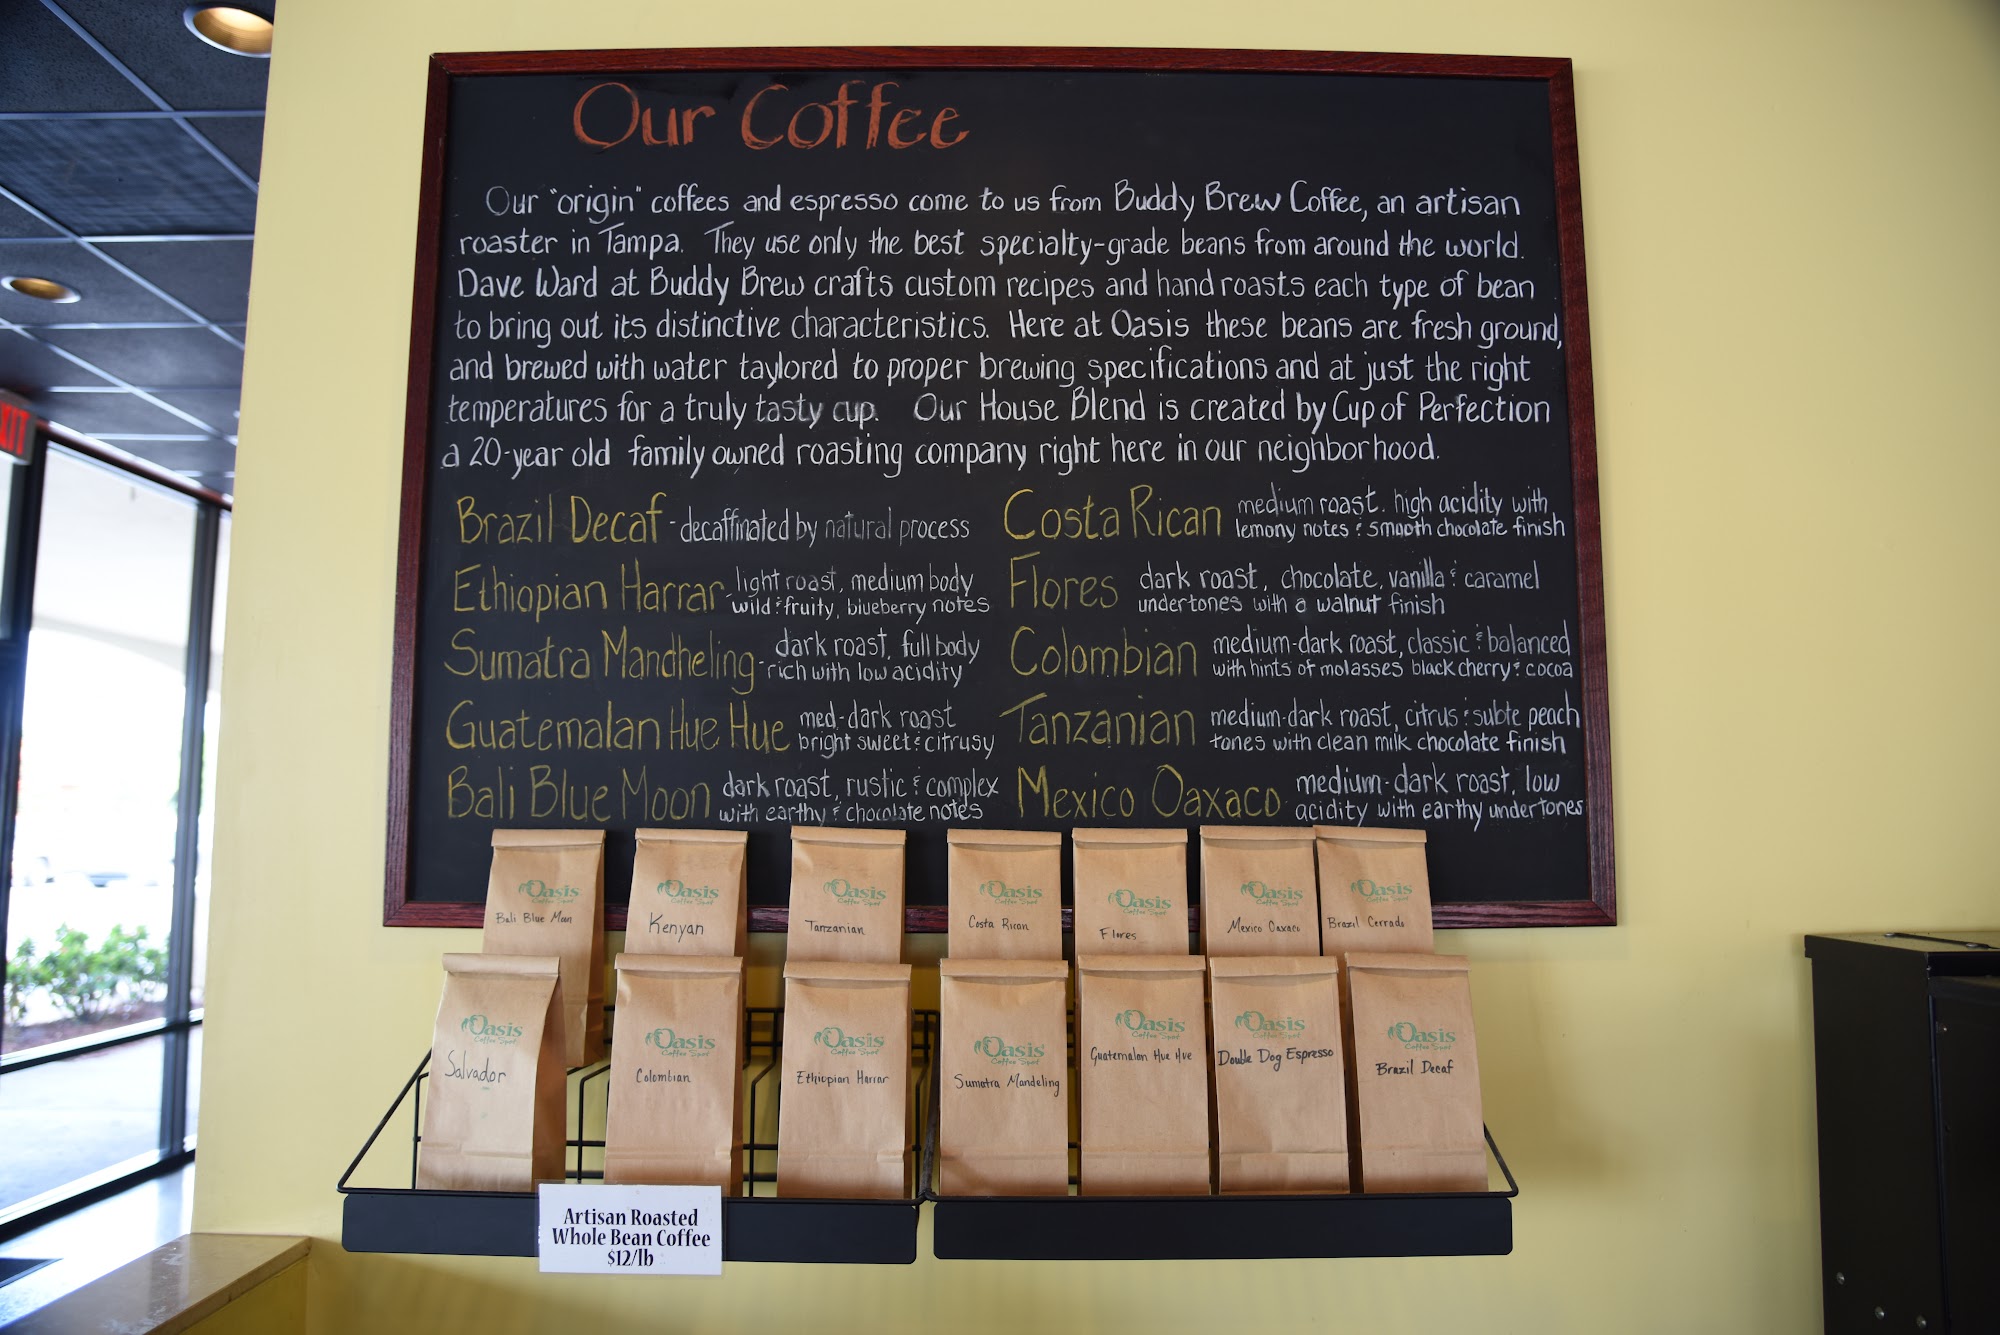 EXIT
Our Coffee
Our "origin" coffees and espresso come to us from Buddy Brew Coffee, an artisan
roaster in Tampa. They use only the best specialty-grade beans from around the world.
Dave Ward at Buddy Brew crafts custom recipes and hand roasts each type of bean
to bring out its distinctive characteristics. Here at Oasis these beans are fresh ground,
and brewed with water taylored to proper brewing specifications and at just the right
temperatures for a truly tasty cup. Our House Blend is created by Cup of Perfection
a 20-year old family owned roasting company right here in our neighborhood.
Brazil Decaf - decaffinated by natural process
Ethiopian Harrar - light roast, medium body
wild & fruity, blueberry notes
Sumatra Mandheling - dark roast, full body
rich with low acidity
Guatemalan Hue Hue med-dark roast
bright sweet & citrusy
Bali Blue Moon dark roast, rustic & complex
with earthy & chocolate notes
Costa Rican medium roast. high acidity with
lemony notes & smooth chocolate finish
Flores dark roast, chocolate, vanilla & caramel
undertones with a walnut finish
Colombian medium-dark roast, classic & balanced
with hints of molasses black cherry & cocoa
Tanzanian medium-dark roast, citrus & subte peach
tones with clean milk chocolate finish
Mexico Oaxaco medium-dark roast, low
acidity with earthy undertones
Oasis
Coffee Spot
Bali Blue Moon
Oasis
Coffee Spot
Kenyan
Oasis
Coffee Spot
Tanzanian
Oasis
Coffee Spot
Costa Rican
Oasis
Coffee Spot
Flores
Oasis
Coffee Spot
Mexico Oaxaco
Oasis
Coffee Spot
Brazil Cerrado
Oasis
Coffee Spot
Salvador
Oasis
Coffee Spot
Colombian
Oasis
Coffee Spot
Ethiopian Harrar
Oasis
Coffee Spot
Sumatra Mandeling
Oasis
Coffee Spot
Guatemalan Hue Hue
Oasis
Coffee Spot
Double Dog Espresso
Oasis
Coffee Spot
Brazil Decaf
Artisan Roasted
Whole Bean Coffee
$12/lb